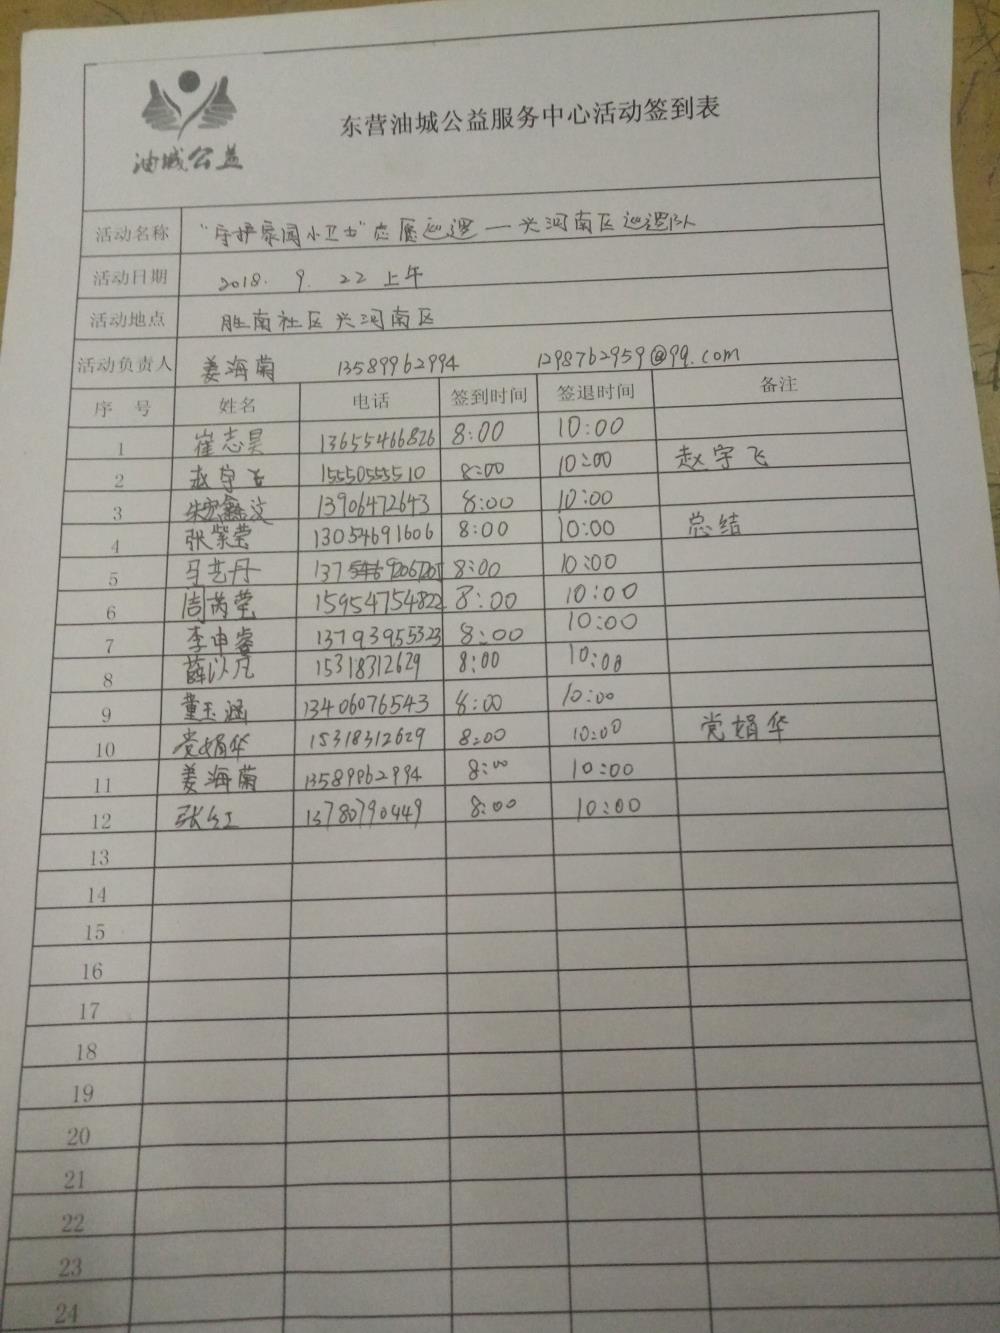 油城公益
东营油城公益服务中心活动签到表
活动名称 "守护家园小卫士"志愿巡逻——兴河南区巡逻队
活动日期 2018. 9. 22 上午
活动地点 胜南社区兴河南区
活动负责人 姜海菊 13589962994 1298762959@qq.com
序号 姓名 电话 签到时间 签退时间 备注
1 崔志昊 13655466826 8:00 10:00
2 赵宇飞 15550555510 8:00 10:00 赵宇飞
3 朱 13906472643 8:00 10:00
4 张紫莹 13054691606 8:00 10:00 总结
5 马艺丹 8:00 10:00
6 周芮莹 15954754822 8:00 10:00
7 李申睿 13793955323 8:00 10:00
8 薛以凡 15318312629 8:00 10:00
9 董玉涵 13406076543 8:00 10:00
10 党娟华 15318312629 8:00 10:00 党娟华
11 姜海菊 13589962994 8:00 10:00
12 张红 13780790449 8:00 10:00
13
14
15
16
17
18
19
20
21
22
23
24